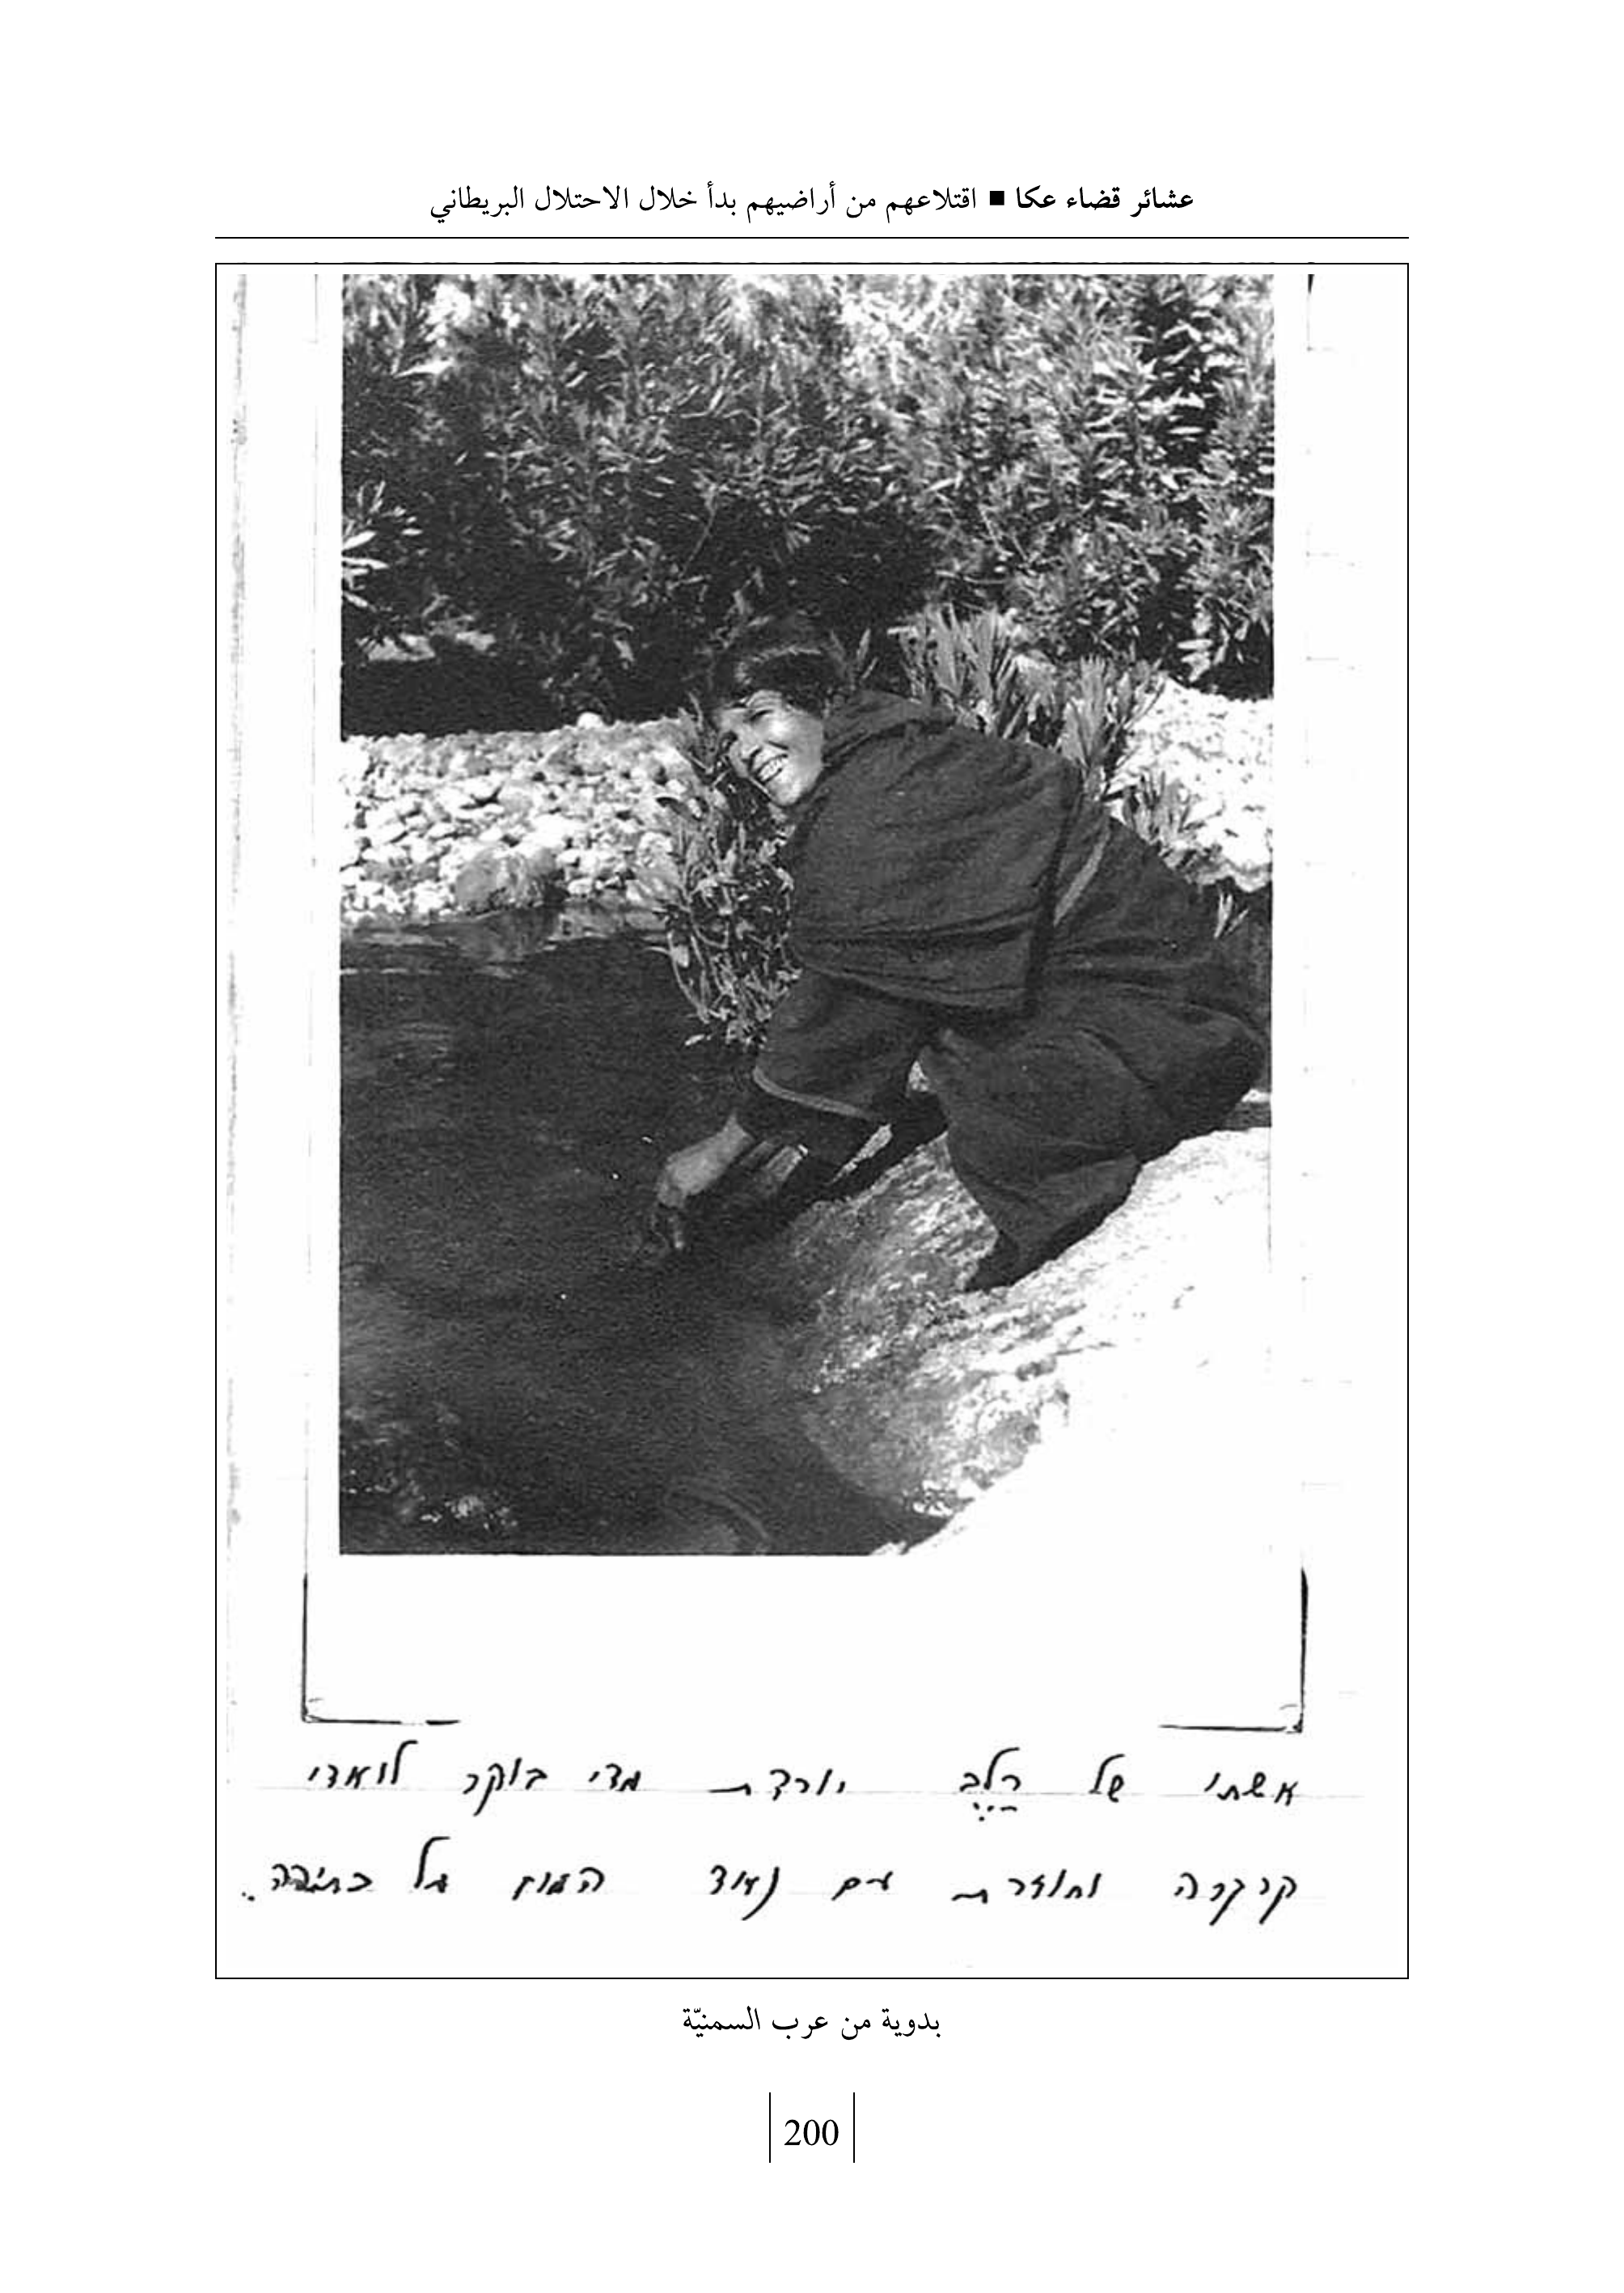 عشائر قضاء عكا ■ اقتلاعهم من أراضيهم بدأ خلال الاحتلال البريطاني
אשתו של יורדת מדי בוקר לואדי
קרקרה וחוזרת עם נאוד המים על כתיפה.
بدوية من عرب السمنيّة
200